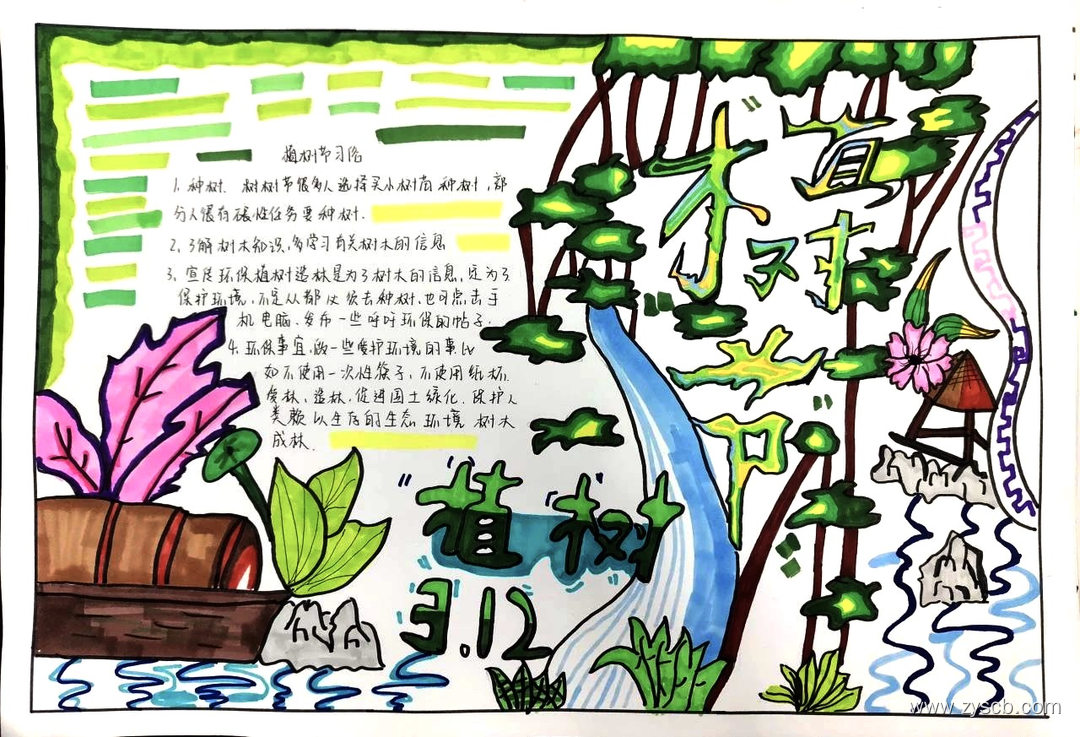 植树节习俗
1、种树、树树节很多人选择买小树苗种树，部
分人很有硬性任务要种树、
2、了解树木知识，多学习有关树木的信息
3、宣传环保植树造林是为了树木的信息，还为了
保护环境，不是从都仅次去种树，也可点击手
机电脑、发布一些呼吁环保的帖子、
4、环保事宜，做一些爱护环境的事比
如不使用一次性筷子，不使用纸杯、
爱林、造林，促进国土绿化、保护人
类赖以生存的生态环境 树木
成林、
植树节
植树
3.12
www.zyscb.com